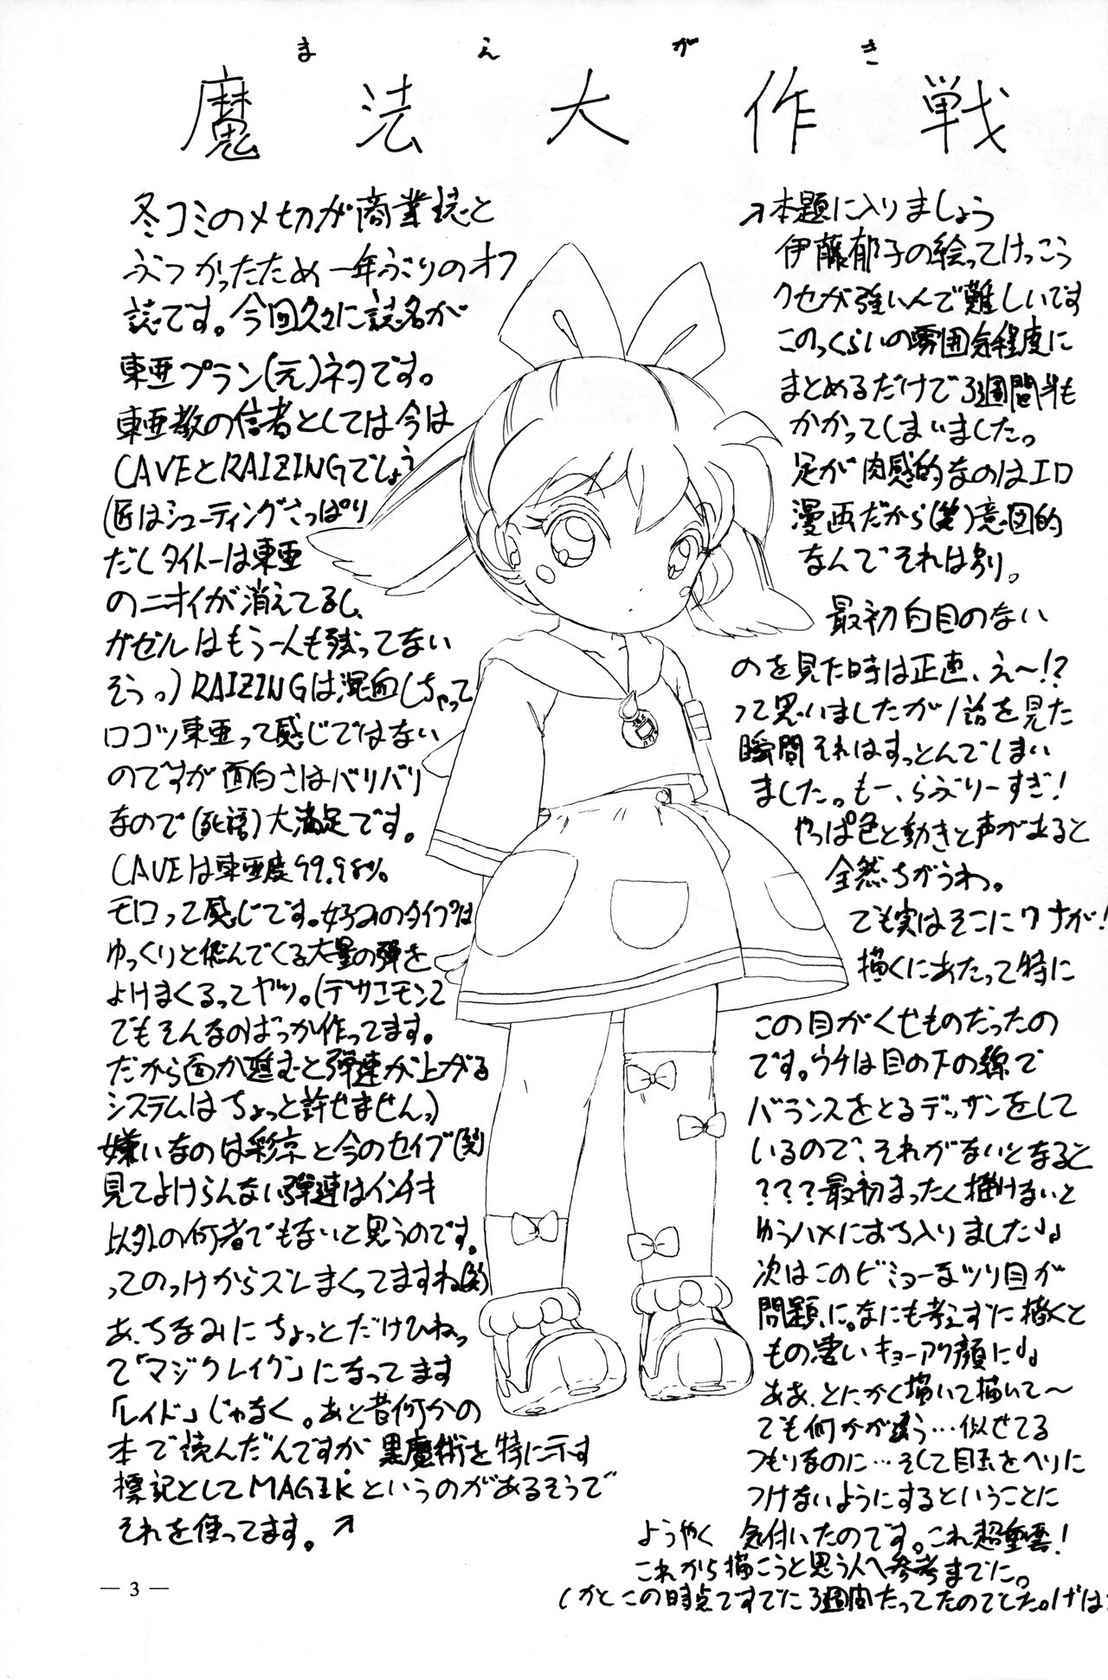 まえがき
魔法大作戦
冬コミのメ切が商業誌と
ぶつかったため一年ぶりのオフ
誌です。今回久々に誌名が
東亜プラン(元)ネタです。
東亜教の信者としては今は
CAVEとRAIZINGでしょう
(匠はシューティングさっぱり
だしタイトーは東亜
のニオイが消えてるし、
ガゼルはもう一人も残ってない
そうっ)RAIZINGは混血しちゃって
ロコツ東亜って感じではない
のですが面白さはバリバリ
なので(死語)大満足です。
CAVEは東亜度99.98%。
モロって感じです。好みのタイプは
ゆっくりと飛んでくる大量の弾を
よけまくるってヤツ。(デザエモン2
でもそんなのばっか作ってます。
だから面が進むと弾速が上がる
システムはちょっと許せませんっ)
嫌いなのは彩京と今のセイブ(笑)
見てよけらんない弾速はインチキ
以外の何者でもないと思うのです。
ってのっけからズレまくってますね(笑)
あ、ちなみにちょっとだけひねっ
て「マジクレイク」になってます
「レイド」じゃなく。あと昔何かの
本で読んだんですが黒魔術を特に示す
標記としてMAGIKというのがあるそうで
それを使ってます。↗
↗本題に入りましょう
伊藤郁子の絵ってけっこう
クセが強いんで難しいです
このっくらいの雰囲気程度に
まとめるだけで3週間半も
かかってしまいました。
足が肉感的なのはエロ
漫画だから(笑)意図的
なんでそれは別。
最初白目のない
のを見た時は正直、え〜!?
って思いましたが1話を見た
瞬間それはすっとんでしまい
ました。もー、らぶりーすぎ!
やっぱ色と動きと声があると
全然ちがうわ。
でも実はそこにワナが!
描くにあたって特に
この目がくせものだったの
です。ウチは目の下の線で
バランスをとるデッサンをして
いるので、それがないとなると
???最初まったく描けないと
ゆうハメにおち入りました♩。
次はこのビミョーなツリ目が
問題に。なにも考えずに描くと
もの凄いキョーアク顔に♩。
ああ、とにかく描いて描いて〜
でも何かが違う…似せてる
つもりなのに…そして目玉をヘリに
つけないようにするということに
ようやく 気付いたのです。これ超重要!
これから描こうと思う人へ参考までに。
(かとこの時点ですでに3週間たってたのでした。げは
— 3 —